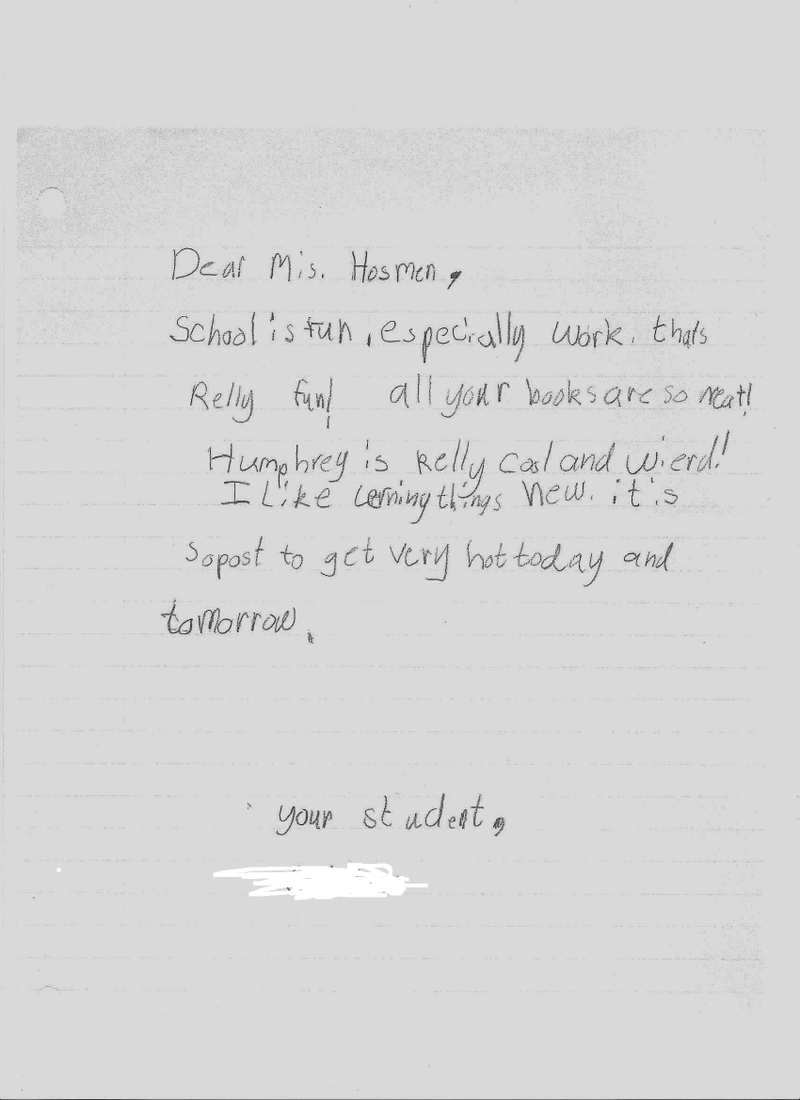 Dear Mis. Hosmen,
School is fun, especially work. thats
Relly fun! all your books are so neat!
Humphrey is relly cool and wierd!
I Like lerning things new. it is
sopost to get very hot today and
tomorrow.
your student,